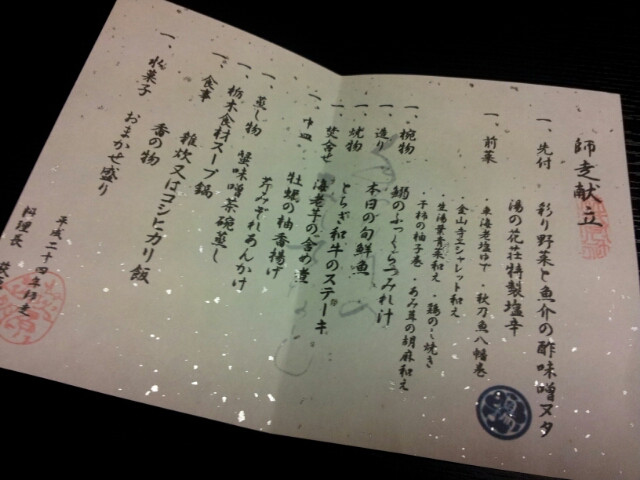 師走献立
一、先付 彩り野菜と魚介の酢味噌ヌタ
湯の花荘特製塩辛
一、前菜
・車海老塩ゆで ・秋刀魚八幡巻
・金山寺エシャレット和え
・生湯葉青菜和え ・鶏の・焼き
・干柿の柚子巻 ・あみ茸の胡麻和え
一、椀物 鰯のふっくらつみれ汁
一、造り 本日の旬鮮魚
一、焼物 とちぎ和牛のステーキ
一、焚合せ 海老芋の含め煮
一、中皿 牡蠣の柚香揚げ
芹みぞれあんかけ
一、蒸し物 蟹味噌茶碗蒸し
一、栃木食材スープ鍋
一、食事 雑炊又はコシヒカリ飯
香の物
一、水菓子 おまかせ盛り
平成二十四年師走
料理長
湯